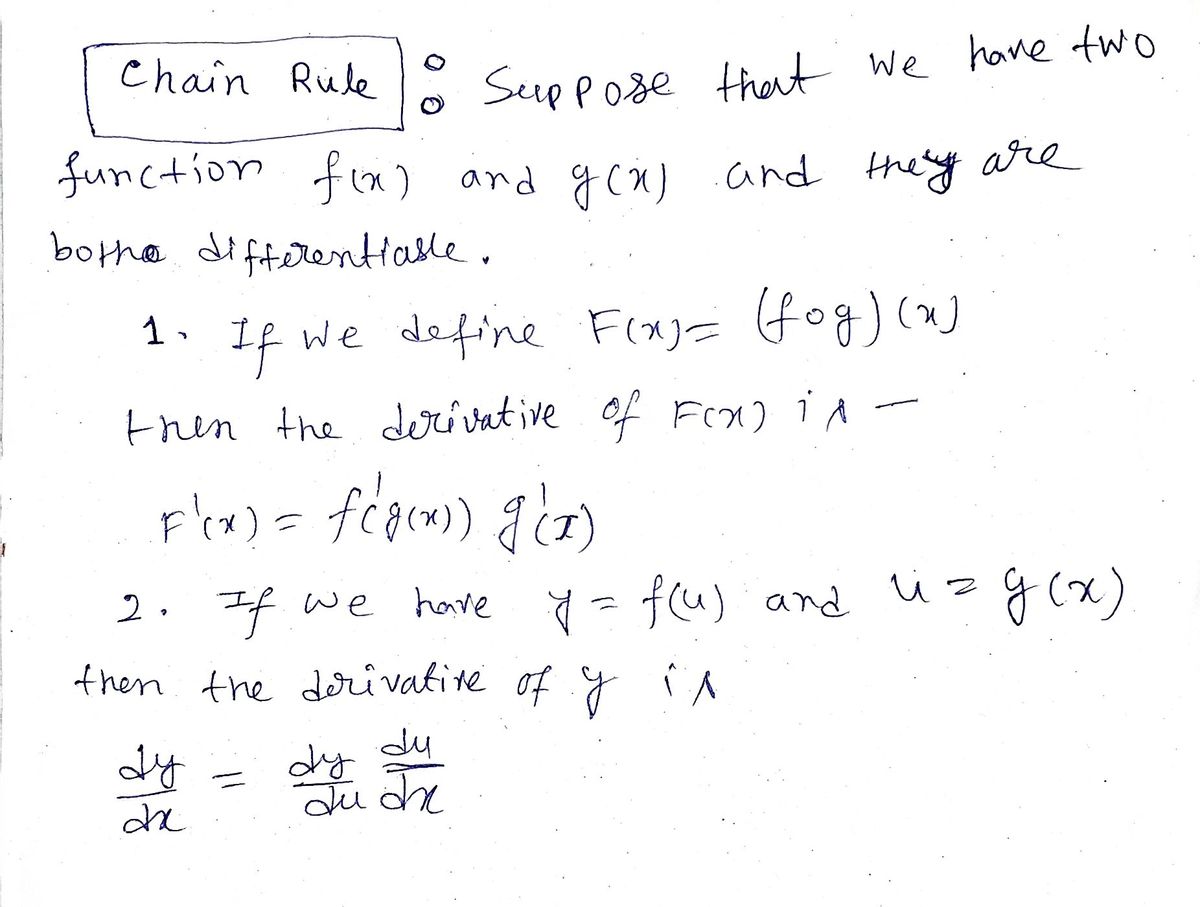 Chain Rule : Suppose that we have two
function f(x) and g(x) and they are
both differentiable.
1. If we define F(x) = (f∘g)(x)
then the derivative of F(x) is —
F'(x) = f'(g(x)) g'(x)
2. If we have y = f(u) and u = g(x)
then the derivative of y is
dy/dx = dy/du du/dx